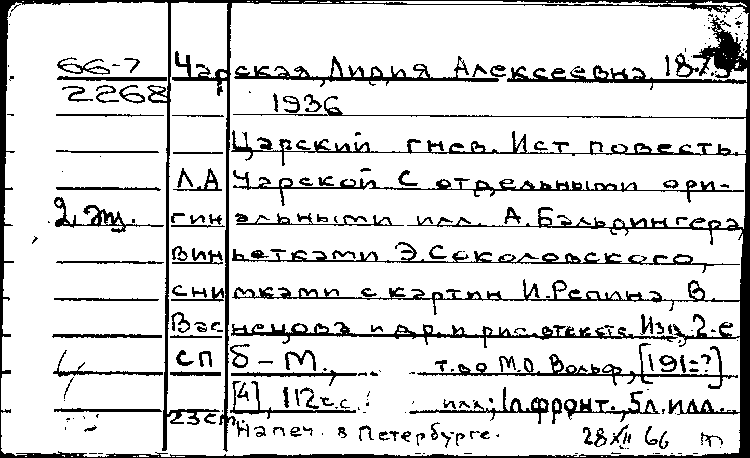 66-7 Чарская, Лидия Алексеевна, 1875-
2268 1936
Царский гнев. Ист. повесть.
Л.А Чарской С отдельными ори-
2 эк. гинальными илл. А. Бальдингера,
виньетками Э. Соколовского,
снимками с картин И. Репина, В.
Васнецова и др. и рис. в тексте. Изд. 2-е
СПб – М., т-во М.О. Вольф, [191=?]
[4], 112 с. с илл.; 1 л. фронт., 5 л. илл.
23 см
Напеч. в Петербурге. 28 XII 66